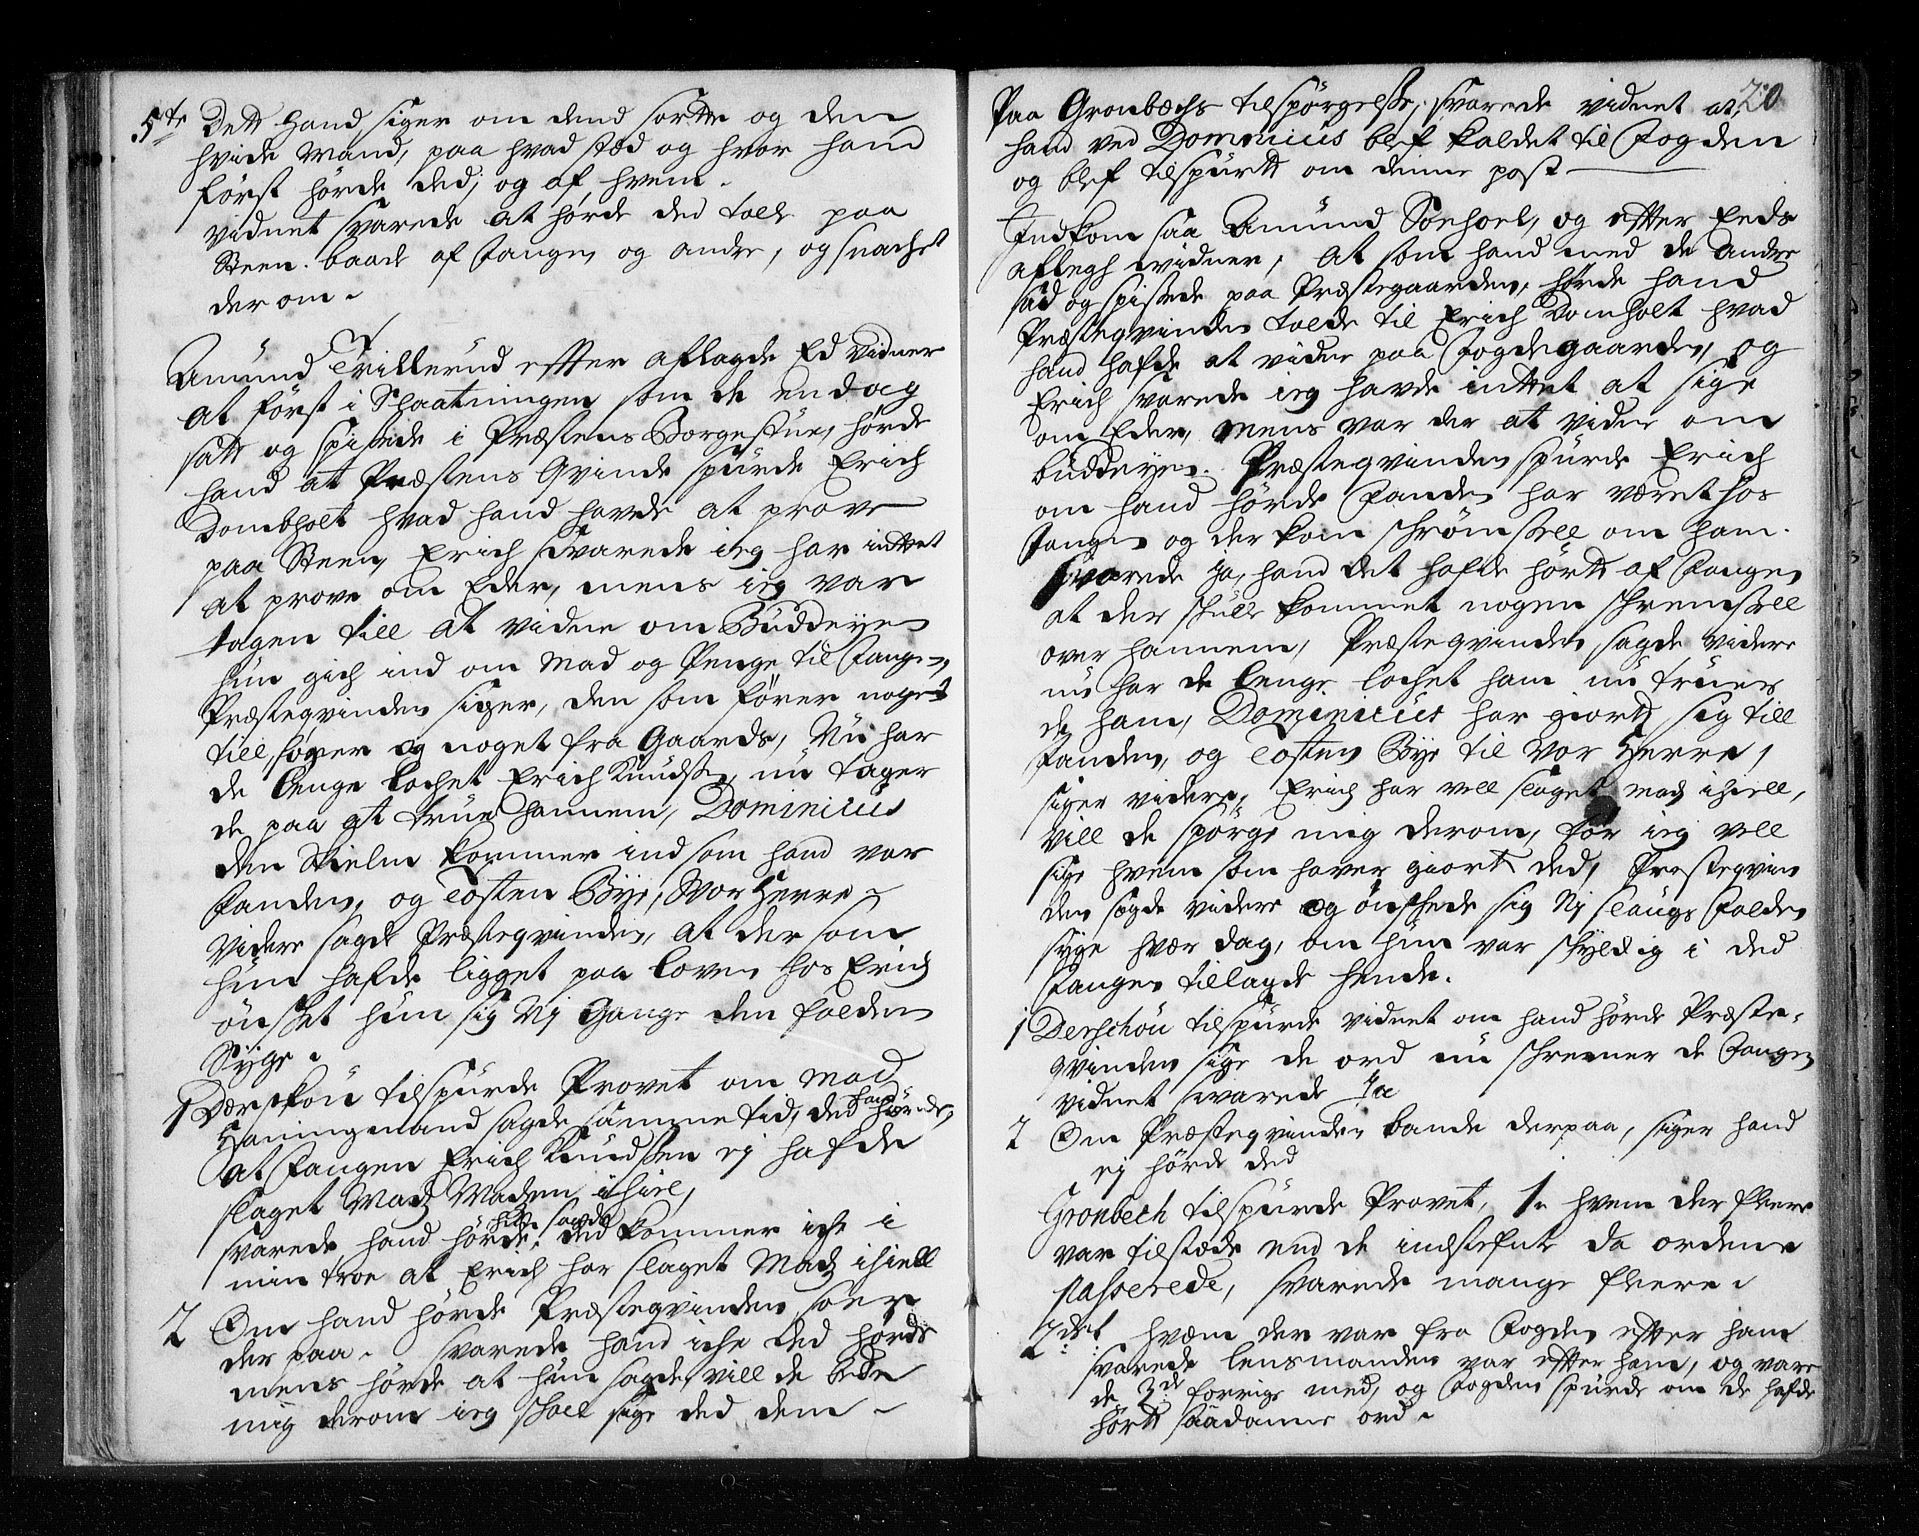 5te Dett Hand siger om dend sortte og den
hvide Mand, paa hvad stæd og hvor hand
først hørde ded, og af hvem.
Vidnet svarede at hørde ded talle paa
Steen. baade af Fangen og andre, og snachet
der om.
Amund Trillerud effter aflagde Ed vidner
at først i Schaatningen som de endog
satt og spisede i Præstens Borgestue, hørde
hand at Præstens Qvinde spurde Erich
Dombholt hvad hand hafde at prove
paa Steen, Erich svarede ieg har inttet
at prove om Eder, mens ieg var
tagen till at vidne om Buddeyen
hun gich ind om Mad og Penge til Fangen,
Præsteqvinden siger, den som fører noget
till, fører og noget fra Gaards, Nu har
de lenge lochet Erich Knudsen, nu tager
de paa at true hannem, Dominicus
den Skielm kommer ind som hand var
Fanden, og Tosten Bye, Vor Herre
Videre sagde Præsteqvinden, at der som
hun hafde ligget paa loven hos Erich
ønsket hun sig Nj Gange den falden
Syge.
1 Derschou tilspurde Provet om Mad
Haningmand sagde samme tid, ded hand hørede,
at Fangen Erich Knudssen ej hafde
slaget Madz Madzen ihiel,
svarede, hand hørde hun sagde ded kommer iche i
min troe at Erich har slaget Madz ihiell
2 Om hand hørde Præsteqvinden soer
der paa. svarede hand iche ded hørde
mens hørde at hun sagde, vill de bede
mig derom ieg schall sige ded dem
20
Paa Gronbechs tilspørgelsse, svarede vidnet at
hand ved Dominicus blef kaldet til Fogden
og blef tilspurtt om denne post
Indkom saa Amund Sønhoel, og efter Eeds
aflegh vidner, at som hand med de andre
sad og spissede paa Præstegaarden, hørde hand
Præsteqvinden talde til Erich Domholt hvad
hand hafde at vidne paa Fogdegaarden, og
Erich svarede ieg havde inttet at sige
om Eder, mens var der at vidne om
buddeyen. Præsteqvinden spurde Erich
om hand hørde Fanden har været hos
Fangen og der kom schrømsell om ham.
svarede ja, hand det hafde hørtt af Fangen
at der skulle kommet nogen schremsell
over hannem, Præsteqvinden sagde videre
nu har de lenge lochet ham nu truer
de ham, Dominicus har giortt sig till
Fanden, og Tosten Bye til Vor Herre,
siger videre, Erich har vell slaget Madz ihiell,
vill de spørge mig derom, før ieg vell
sige hvem som haver giortt ded, Præsteqvin
den sagde videre og ønschede sig Nj slaugs Falden
syge hver dag, om hun var schyldig i ded
Fangen tillagde hende.
1 Derschou tilspurde vidnet om hand hørde Præste,
qvinden sige de ord nu schremer de Fangen
vidnet svarede Ja
2 Om Præsteqvinden bande derpaa, siger hand
ej hørde ded
Gronbech tilspurde Provet, 1. hvem der fleere
var tilstæde end de indstefnte da ordene
passerede, svarede mange fleere.
2det hvem der var fra Fogden efter ham
svarede lensmanden var effter ham, og vare
de 3de forrige med, og Fogden spurde om de hafde
hørtt saadanne ord.